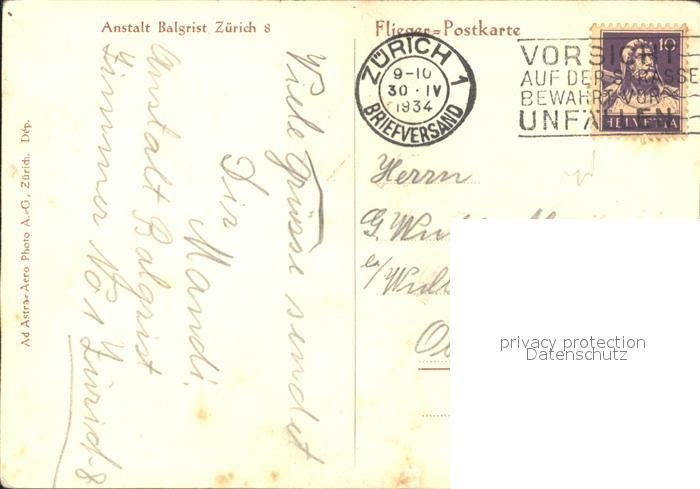 Anstalt Balgrist Zürich 8
Flieger=Postkarte
ZÜRICH 1
9-10
30·IV
1934
BRIEFVERSAND
VORSICHT
AUF DER STRASSE
BEWAHRT VOR
UNFÄLLEN
10
HELVETIA
Viele Grüsse sendet
Dir
Mandi.
Anstalt Balgrist
Zimmer No 1 Zürich 8
Ad Astra=Aero Photo A.-G., Zürich. Dép.
Herrn
G.
privacy protection
Datenschutz